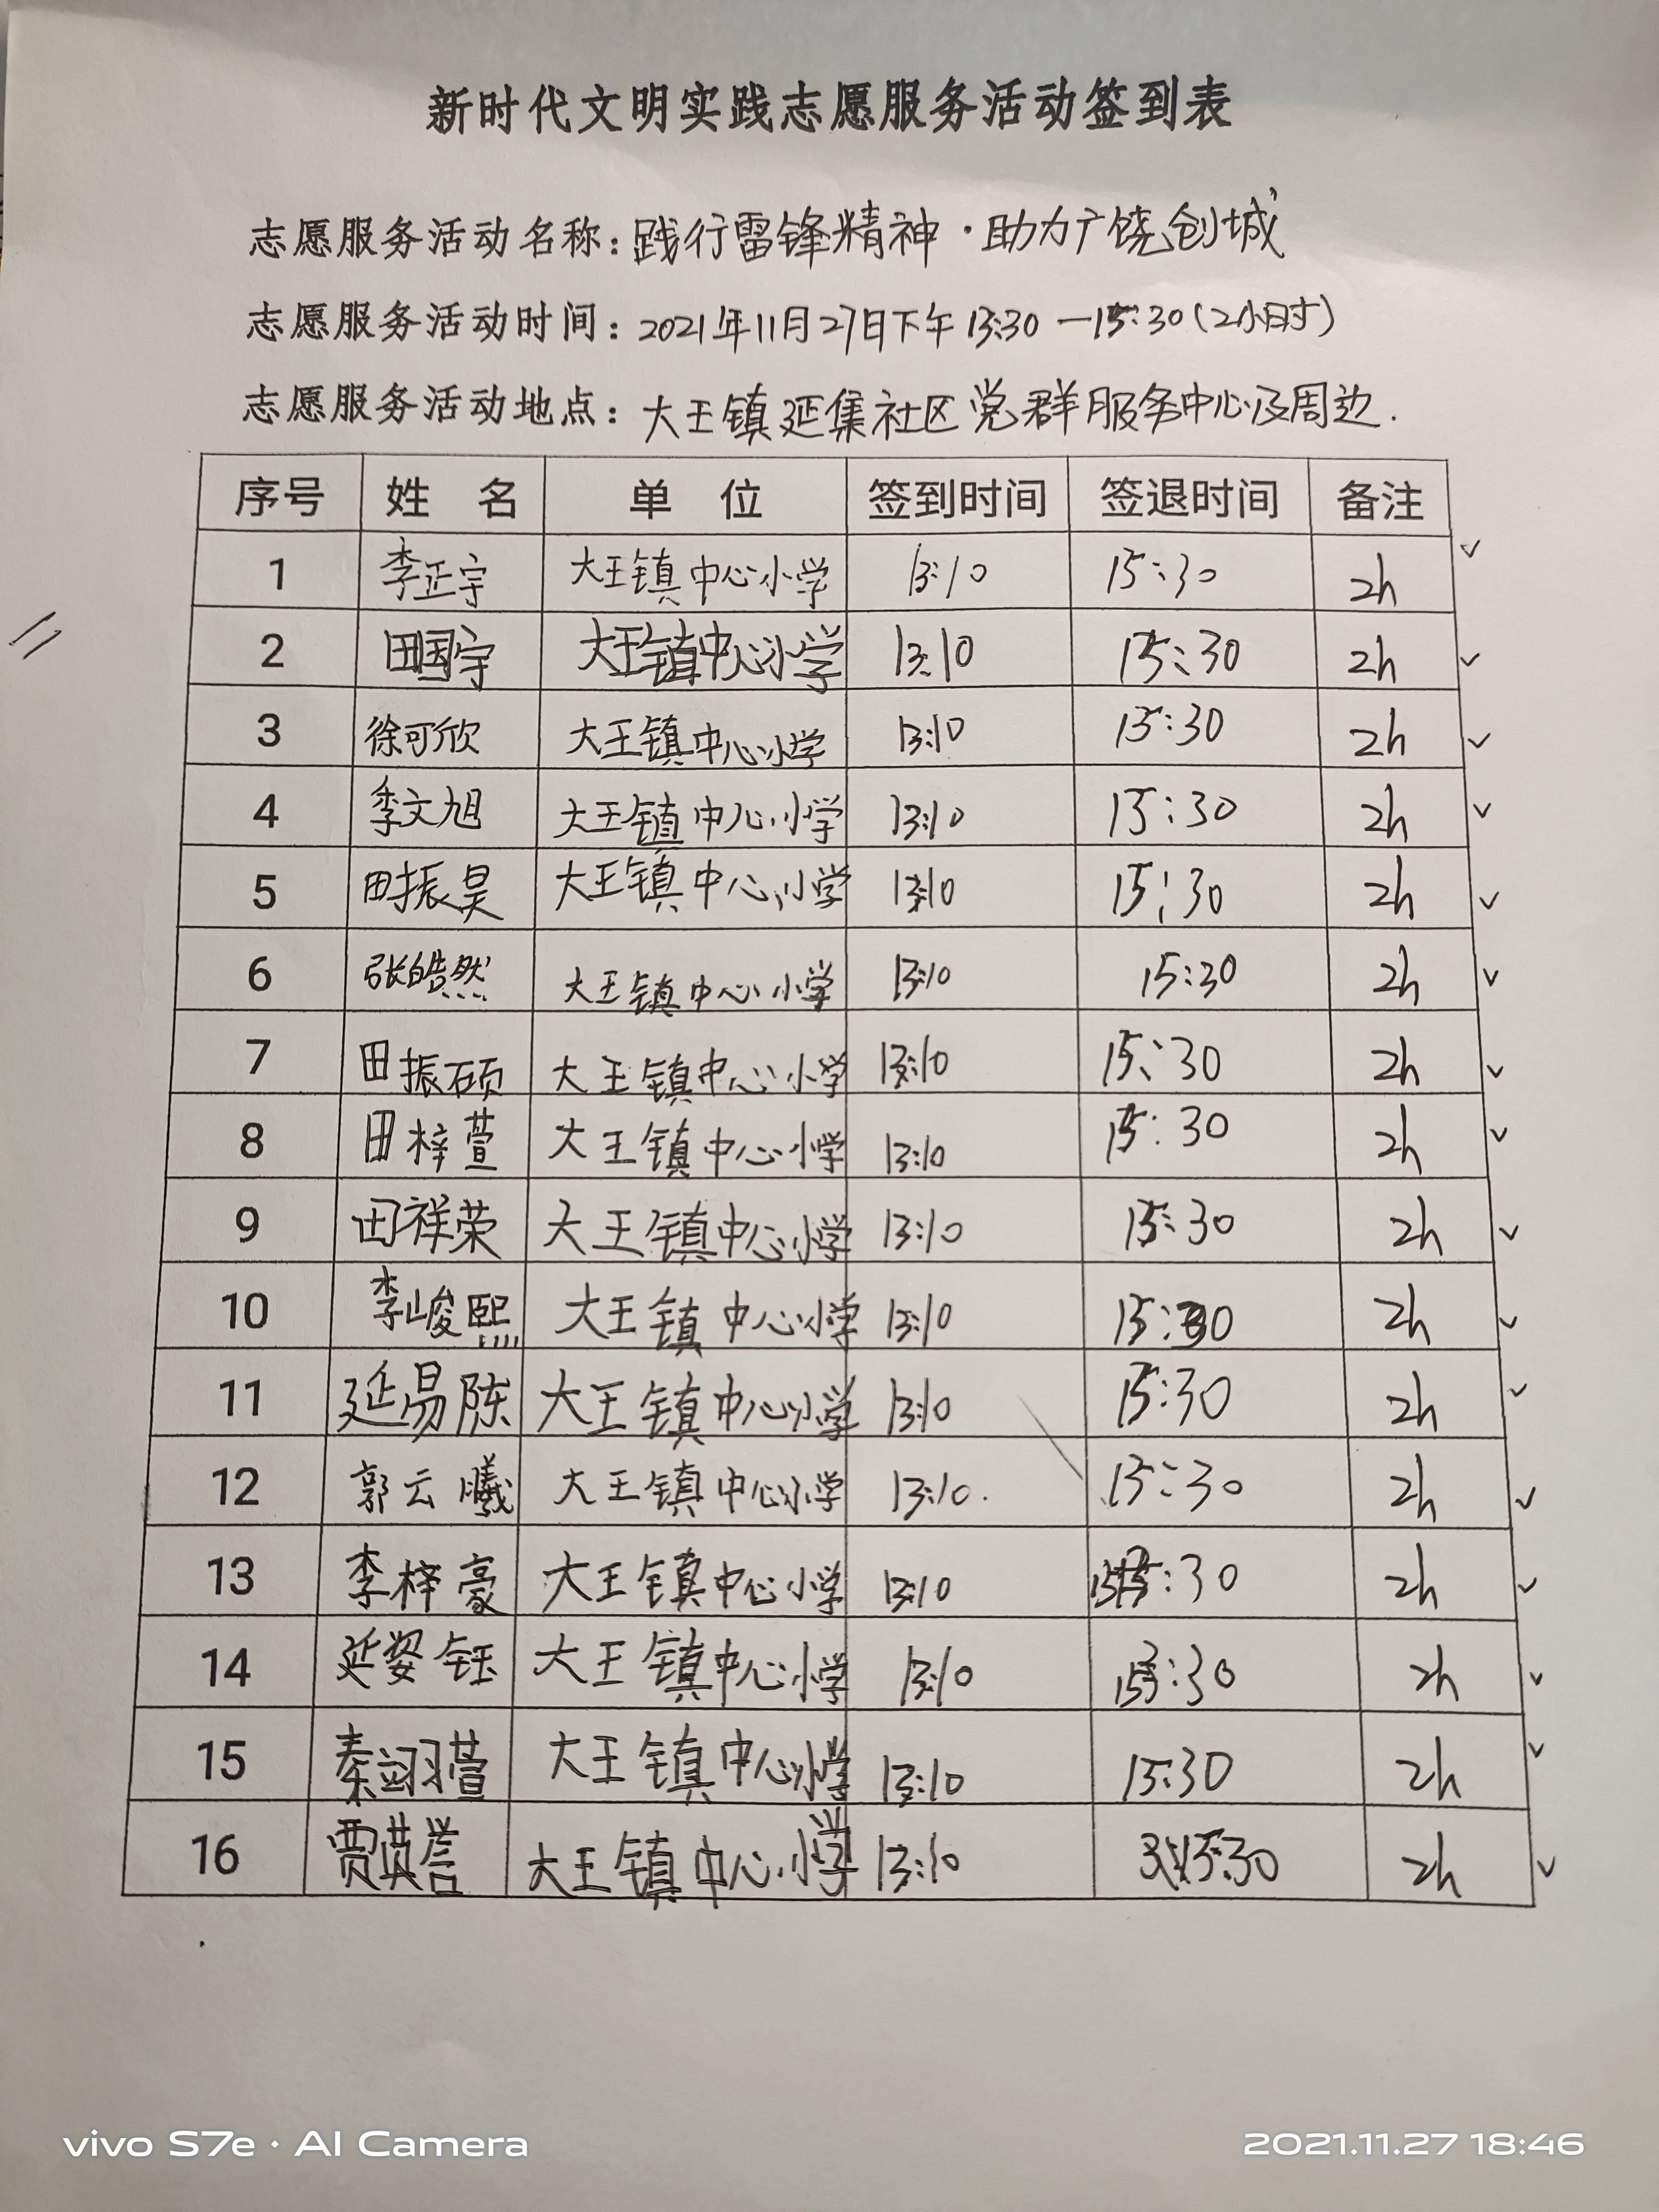 新时代文明实践志愿服务活动签到表
志愿服务活动名称：践行雷锋精神·助力广饶创城
志愿服务活动时间：2021年11月27日下午13:30—15:30（2小时）
志愿服务活动地点：大王镇延集社区党群服务中心及周边.
序号 姓名 单位 签到时间 签退时间 备注
1 李正宇 大王镇中心小学 13:10 15:30 2h
2 田国宇 大王镇中心小学 13:10 15:30 2h
3 徐可欣 大王镇中心小学 13:10 15:30 2h
4 李文旭 大王镇中心小学 13:10 15:30 2h
5 田振昊 大王镇中心小学 13:10 15:30 2h
6 张皓然 大王镇中心小学 13:10 15:30 2h
7 田振硕 大王镇中心小学 13:10 15:30 2h
8 田梓萱 大王镇中心小学 13:10 15:30 2h
9 田祥荣 大王镇中心小学 13:10 15:30 2h
10 李峻熙 大王镇中心小学 13:10 15:30 2h
11 延易陈 大王镇中心小学 13:10 15:30 2h
12 郭云曦 大王镇中心小学 13:10. 15:30 2h
13 李梓豪 大王镇中心小学 13:10 15:30 2h
14 延姿钰 大王镇中心小学 13:10 15:30 2h
15 秦翊萱 大王镇中心小学 13:10 15:30 2h
16 贾英誉 大王镇中心小学 13:10 15:30 2h
vivo S7e · AI Camera
2021.11.27 18:46